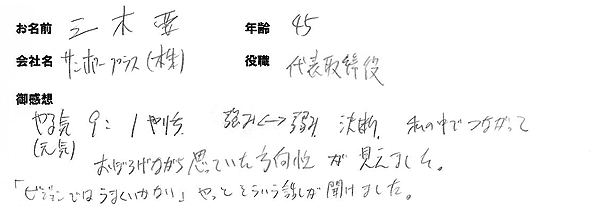 お名前 三木 要 年齢 45
会社名 サンホープラス(株) 役職 代表取締役
御感想
やる気 9:1 やり方. 強み<->弱み 決断. 私の中でつながって
(元気)
おぼろげながら思っていた方向性が見えました。
「ビジョンではうまくいかない」やっとそういう話しが聞けました。